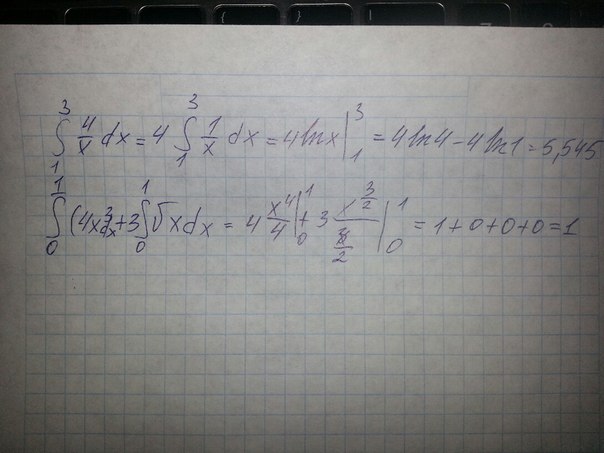 ∫₁³ 4/x dx = 4 ∫₁³ 1/x dx = 4 ln x |₁³ = 4 ln 4 − 4 ln 1 = 5,545
∫₀¹ (4x³dx + 3 ∫₀¹ √x dx = 4 x⁴/4 |₀¹ + 3 x^(3/2)/(3/2) |₀¹ = 1 + 0 + 0 + 0 = 1